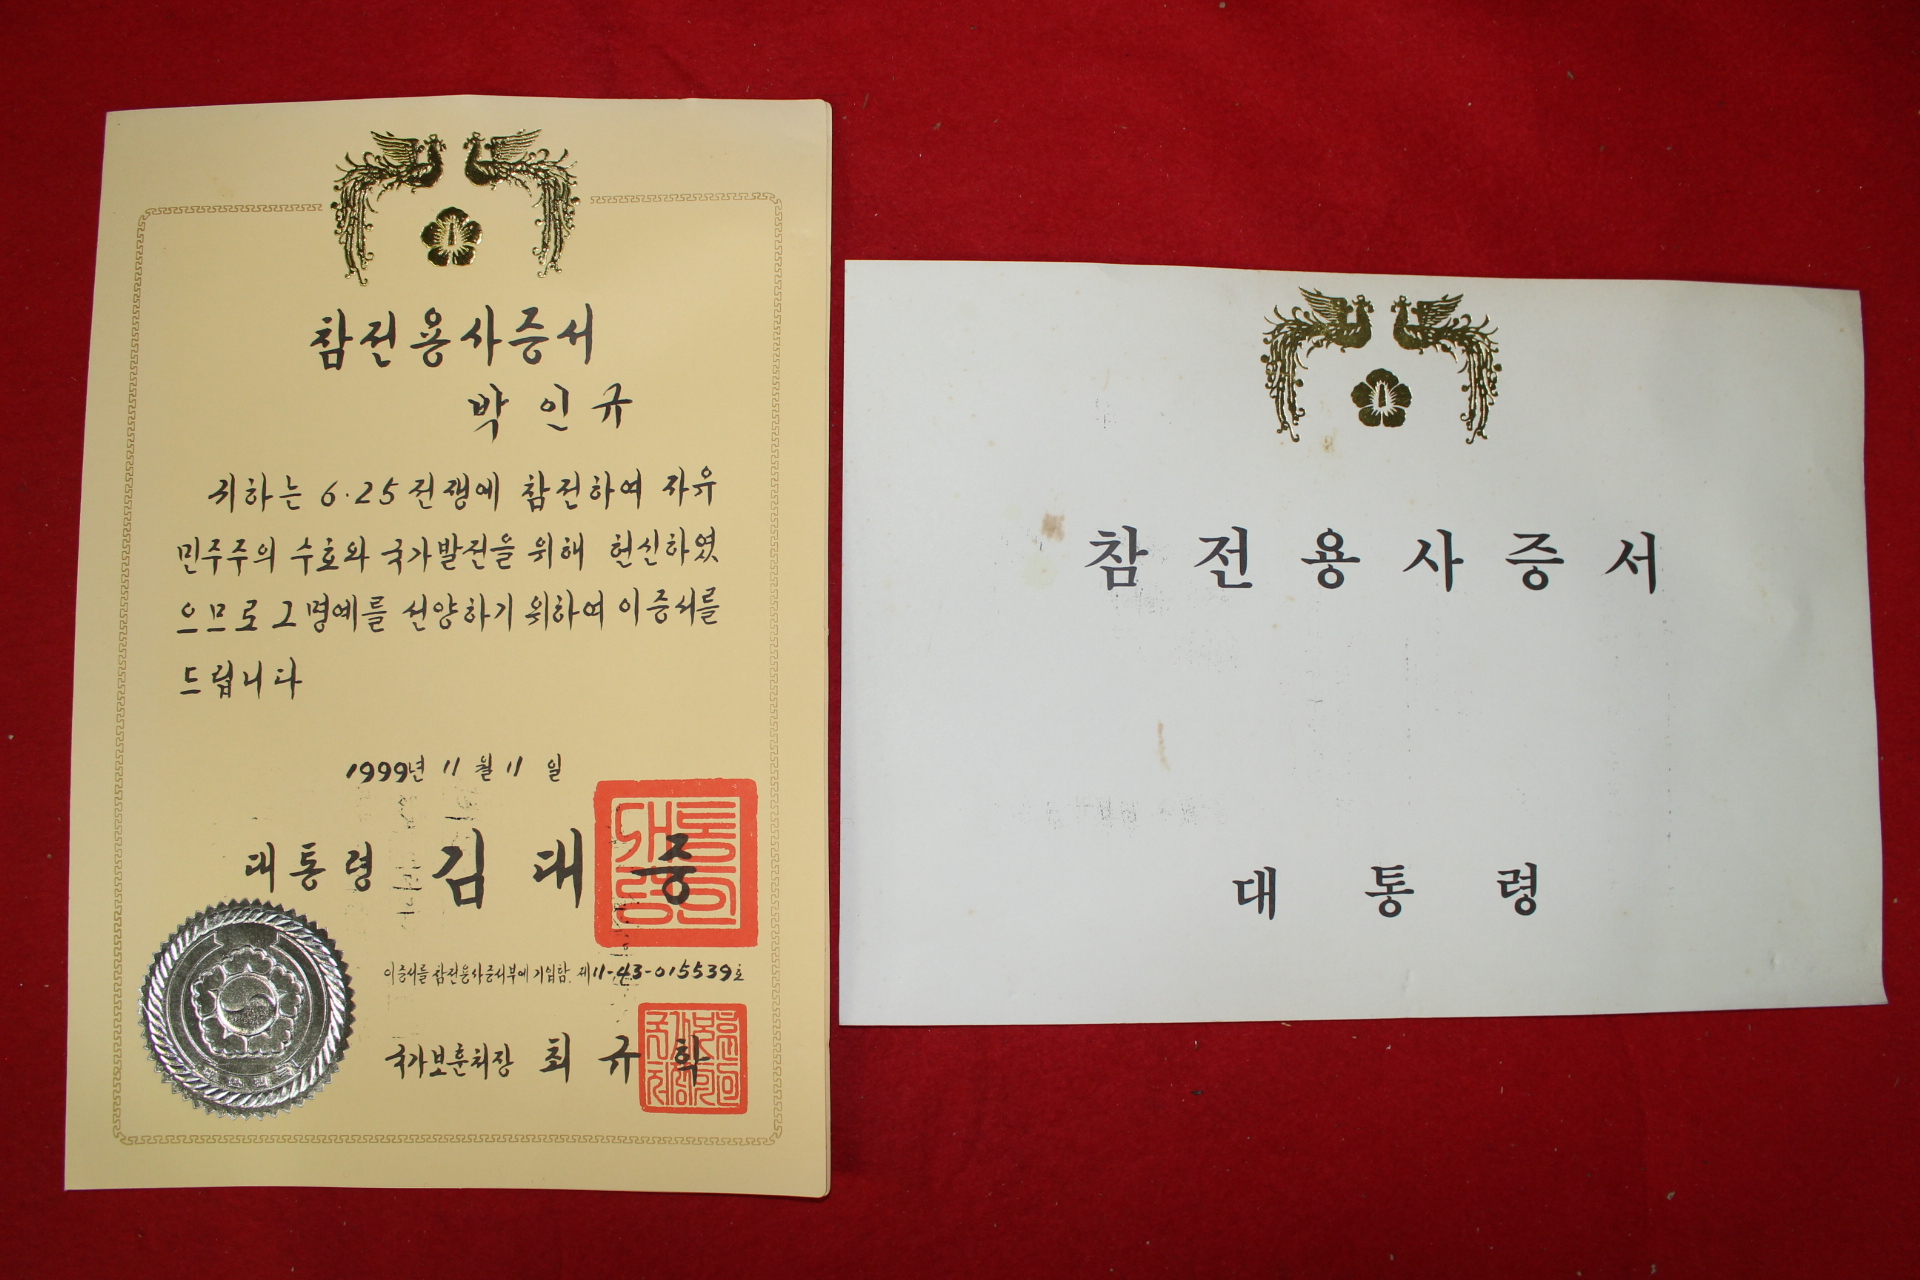 참전용사증서
박인규
귀하는 6·25전쟁에 참전하여 자유
민주주의 수호와 국가발전을 위해 헌신하였
으므로 그 명예를 선양하기 위하여 이 증서를
드립니다
1999년 11월 11일
대통령 김대중
이 증서를 참전용사증서부에 기입함. 제11-43-015539호
국가보훈처장 최규학
참전용사증서
대통령